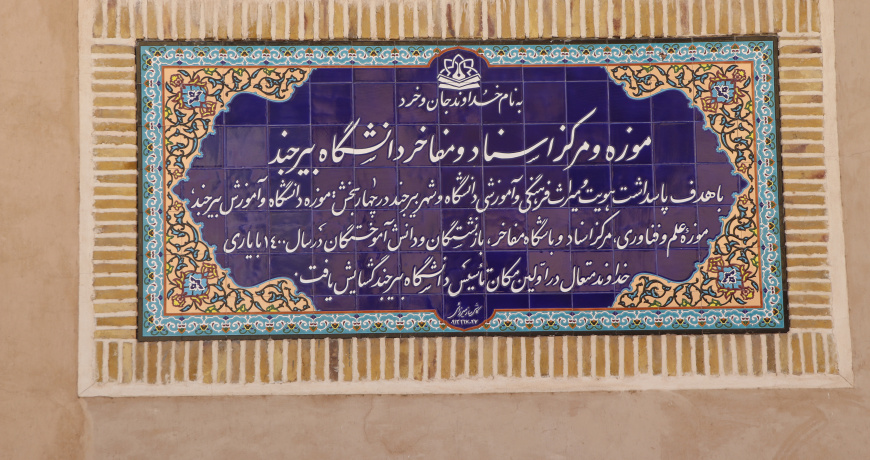 به نام خداوند جان و خرد
موزه و مرکز اسناد و مفاخر دانشگاه بیرجند
با هدف پاسداشت هویت و میراث فرهنگی و آموزشی دانشگاه و شهر بیرجند در چهار بخش: موزه دانشگاه و آموزش بیرجند،
موزه علم و فناوری، مرکز اسناد و باشگاه مفاخر، بازنشستگان و دانش آموختگان در سال ۱۴۰۰ با یاری
خداوند متعال در اولین مکان تأسیس دانشگاه بیرجند گشایش یافت.